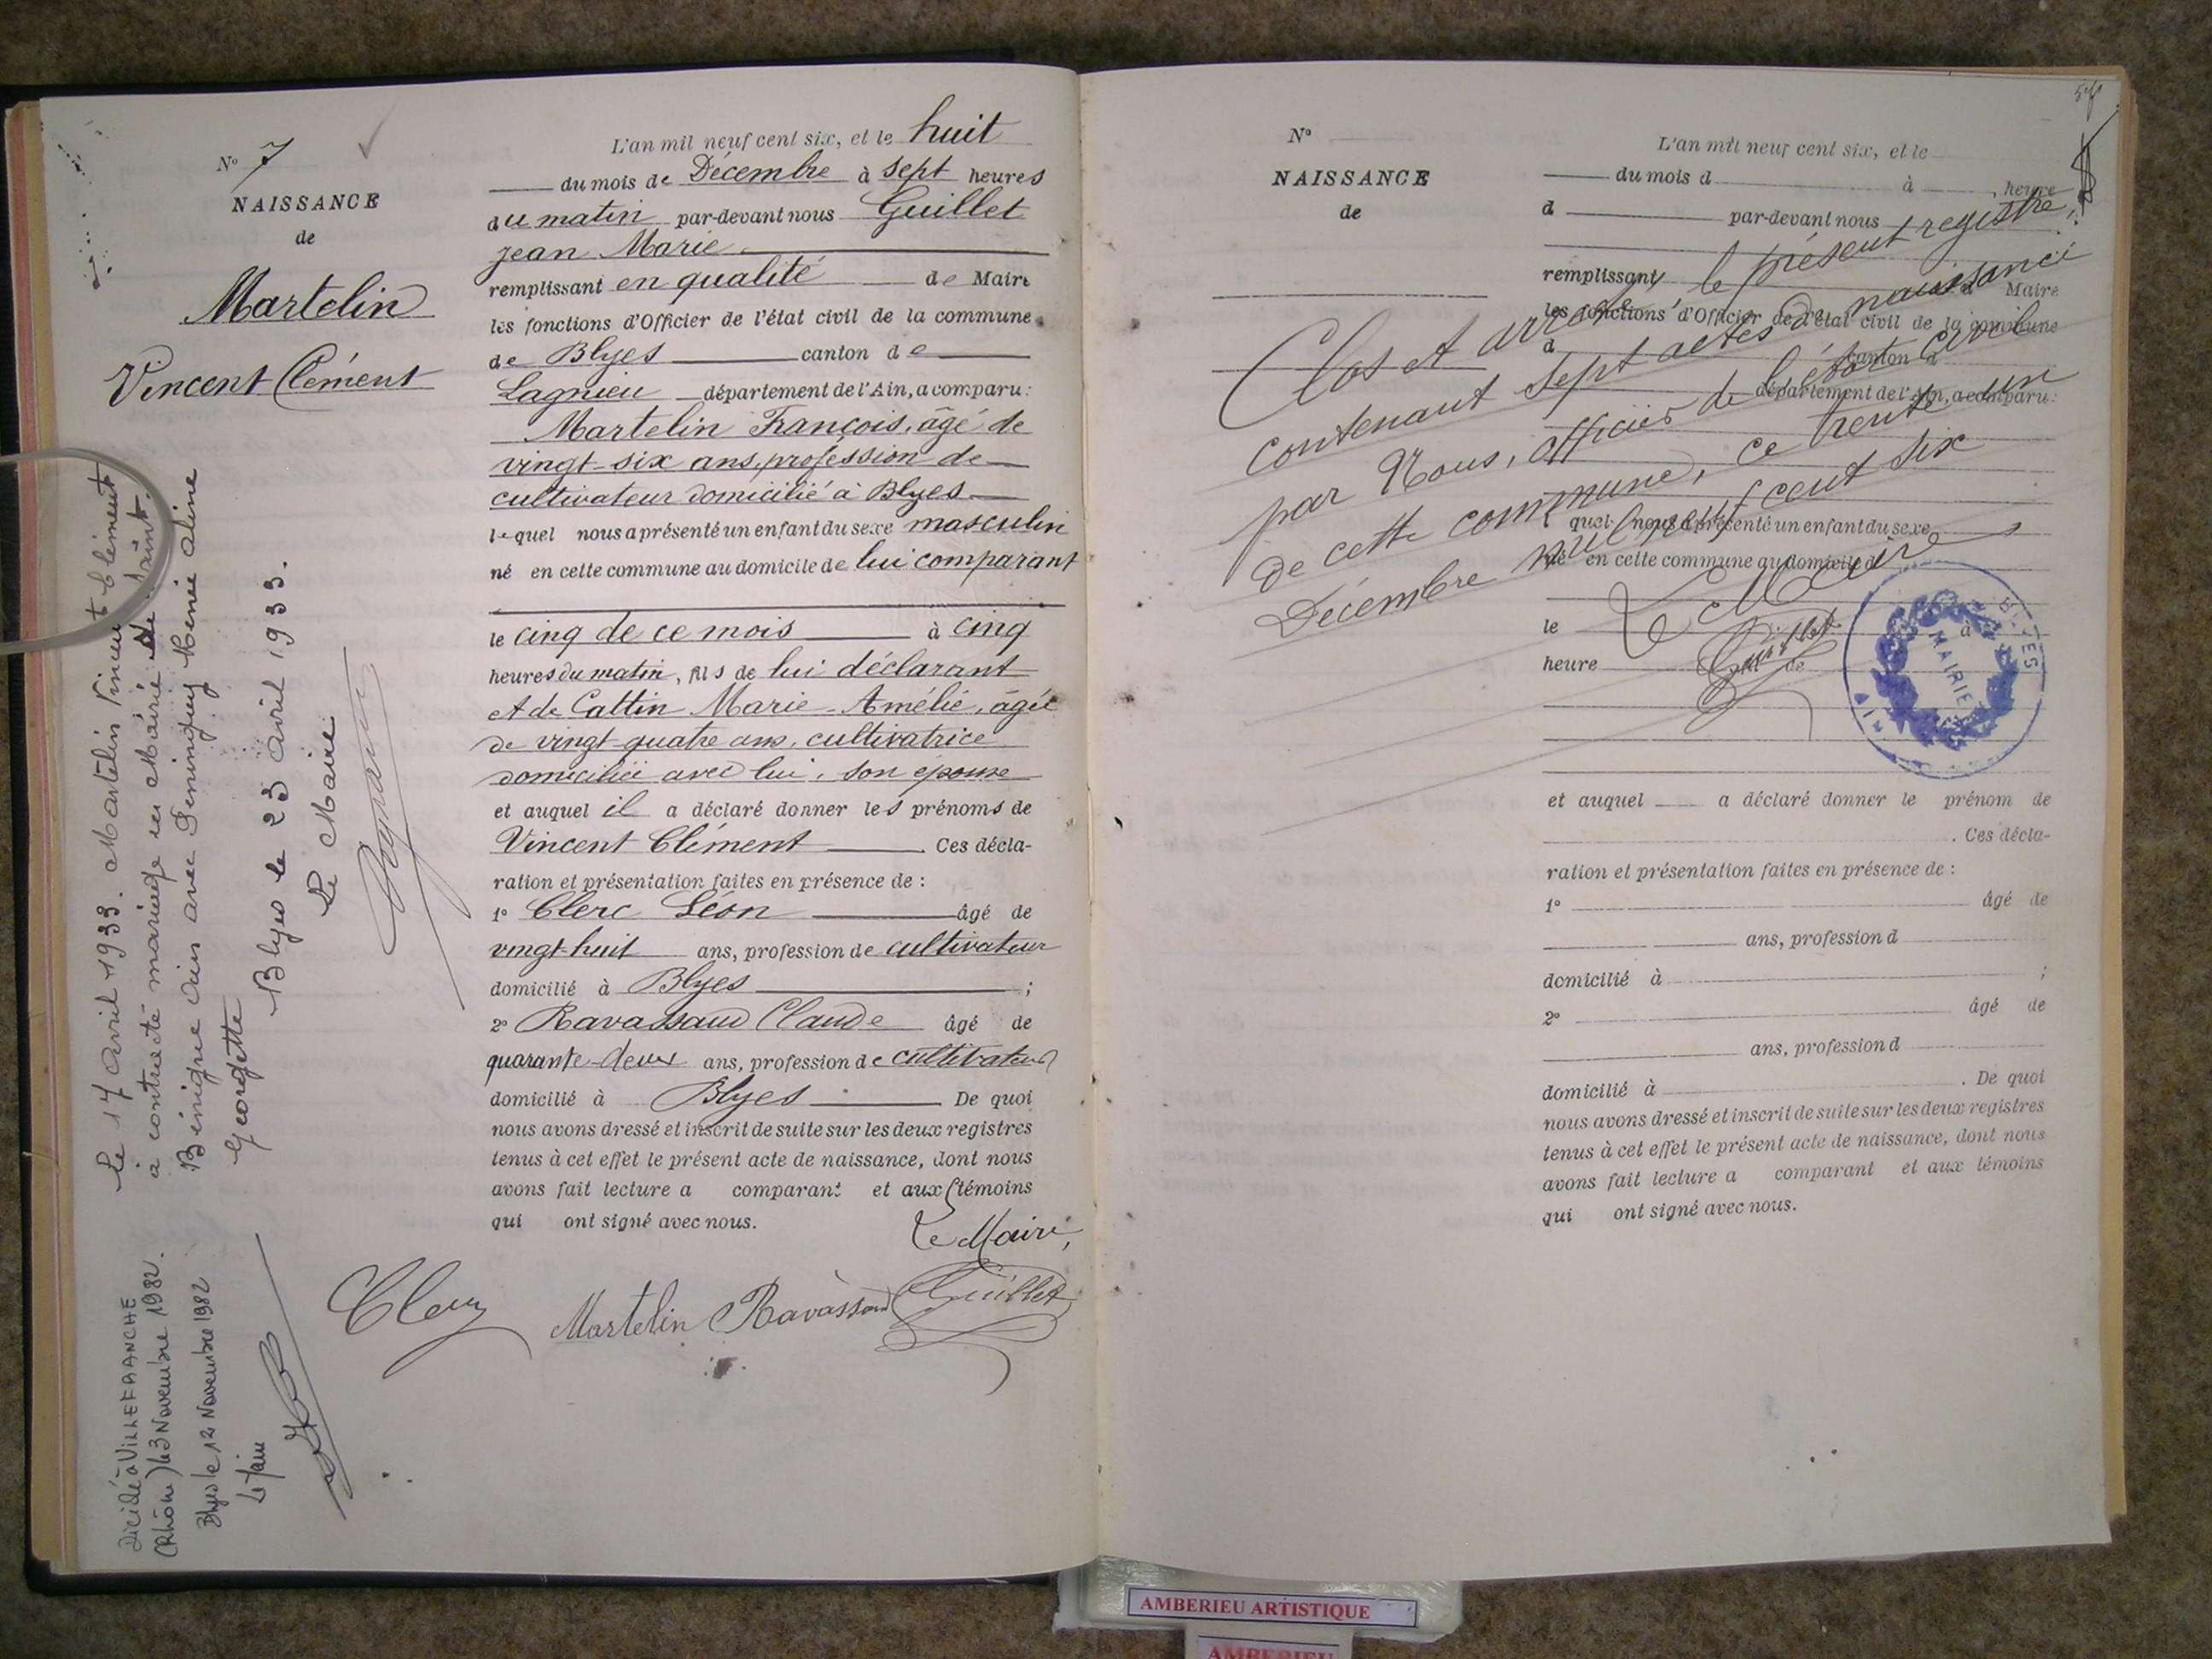 N° 7
NAISSANCE
de
Martelin
Vincent Clément
L'an mil neuf cent six, et le huit
du mois de Décembre à sept heures
du matin par-devant nous Guillet
Jean Marie
remplissant en qualité de Maire
les fonctions d'Officier de l'état civil de la commune
de Blyes canton de
Lagnieu département de l'Ain, a comparu:
Martelin François, âgé de
vingt-six ans, profession de
cultivateur domicilié à Blyes
lequel nous a présenté un enfant du sexe masculin
né en cette commune au domicile de lui comparant
le cinq de ce mois à cinq
heures du matin, fils de lui déclarant
et de Cattin Marie-Amélie, âgée
de vingt-quatre ans, cultivatrice
domiciliée avec lui, son epouse
et auquel il a déclaré donner les prénoms de
Vincent Clément. Ces décla-
ration et présentation faites en présence de :
1° Clerc Léon âgé de
vingt-huit ans, profession de cultivateur
domicilié à Blyes ;
2° Ravassaud Claude âgé de
quarante-deux ans, profession de cultivateur
domicilié à Blyes De quoi
nous avons dressé et inscrit de suite sur les deux registres
tenus à cet effet le présent acte de naissance, dont nous
avons fait lecture a comparant et aux témoins
qui ont signé avec nous.
Le Maire,
Clerc Martelin Ravassaud Guillet
Le 17 avril 1933. Martelin Vincent Clément
à contracté mariage en Mairie de Saint.
Bénigne Ain avec Renée Aline
Georgette
Blyes le 23 avril 1933.
Le Maire
Décédé à VILLEFRANCHE
(Rhône) le 3 Novembre 1982.
Blyes le 12 Novembre 1982
Le Maire
N°
NAISSANCE
de
L'an mil neuf cent six, et le
du mois d à heure
d par-devant nous
remplissant d Maire
les fonctions d'Officier de l'état civil de la commune
d canton d
département de l'Ain, a comparu:
quel nous a présenté un enfant du sexe
né en cette commune au domicile d
le à
heure fil de
et auquel a déclaré donner le prénom de
. Ces décla-
ration et présentation faites en présence de :
1° âgé de
ans, profession d
domicilié à ;
2° âgé de
ans, profession d
domicilié à . De quoi
nous avons dressé et inscrit de suite sur les deux registres
tenus à cet effet le présent acte de naissance, dont nous
avons fait lecture a comparant et aux témoins
qui ont signé avec nous.
Clos et arrêté le présent registre
contenant sept actes de naissance
par Nous, officier de l'état civil
de cette commune, ce trente un
Décembre mil neuf cent six
Le Maire
Guillet
MAIRIE
BLYES
AIN
AMBERIEU ARTISTIQUE
AMBERIEU